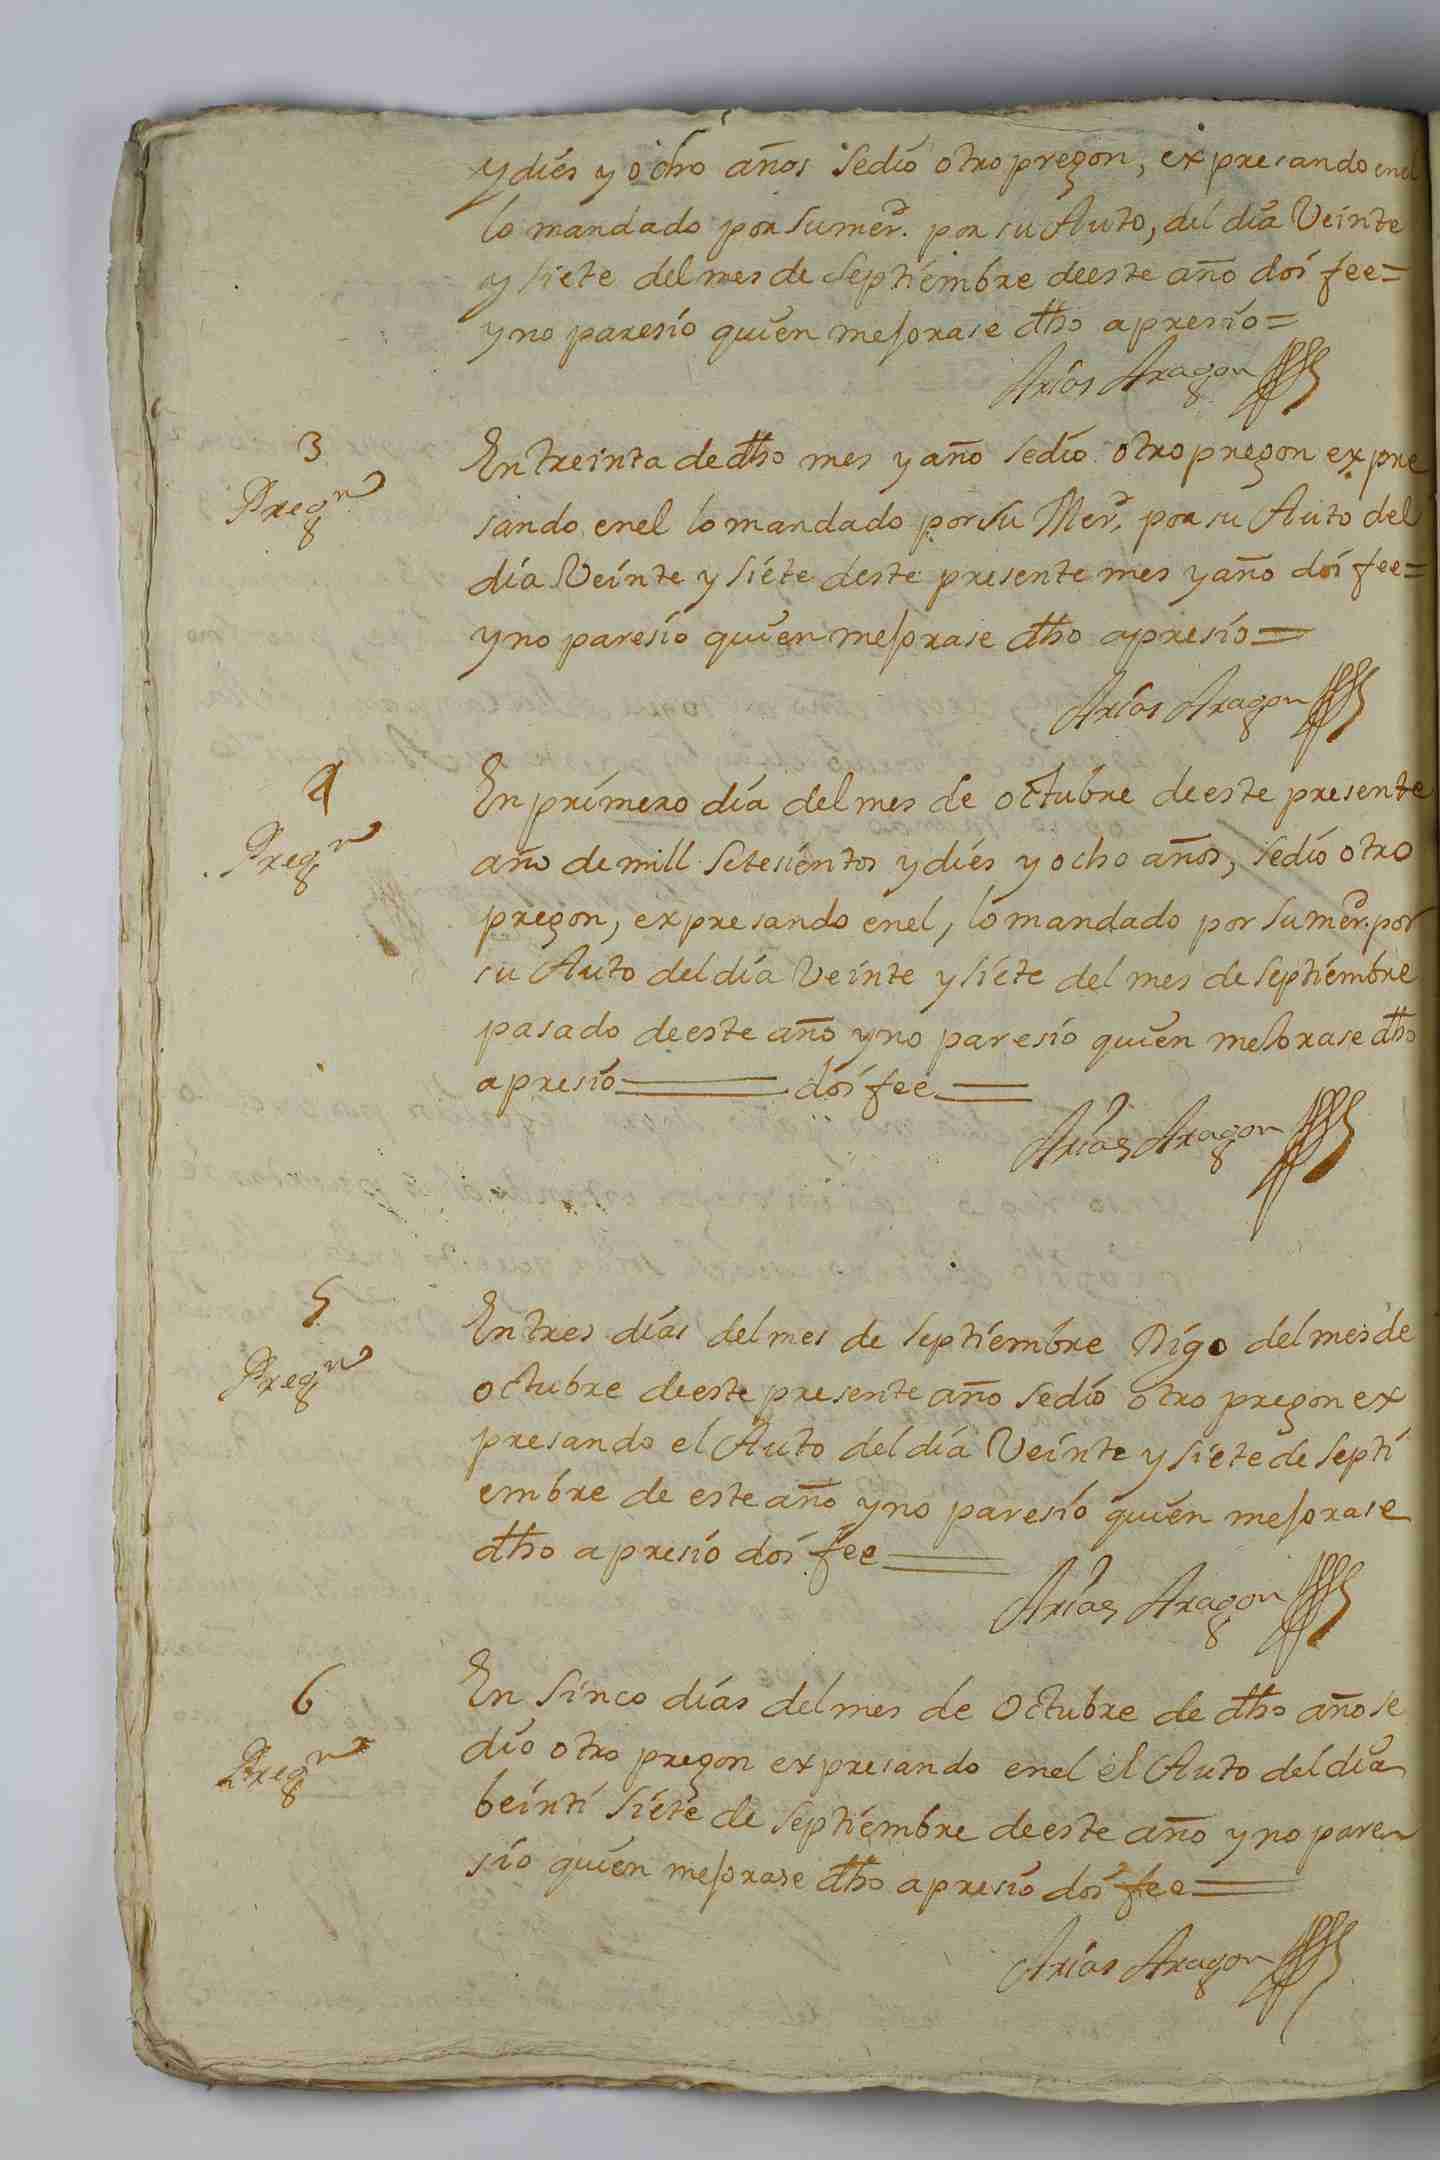 y dies y ocho años se dio otro pregon, expresando enel
lo mandado por su merd. por su Auto, del dia Veinte
y siete del mes de Septiembre de este año doi fee=
y no paresio quien mejorase dho apresio=
Arias Aragon
3
Pregn
En treinta de dho mes y año se dio otro pregon expre
sando enel lo mandado por su Merd. por su Auto del
dia Veinte y siete deste presente mes y año doi fee=
y no paresio quien mejorase dho apresio=
Arias Aragon
4
Pregn
En primero dia del mes de octubre de este presente
año de mill setesientos y dies y ocho años, se dio otro
pregon, expresando enel, lo mandado por su merd. por
su Auto del dia Veinte y siete del mes de septiembre
pasado de este año y no paresio quien mejorase dho
apresio doi fee
Arias Aragon
5
Pregn
En tres dias del mes de septiembre Digo del mes de
octubre de este presente año se dio otro pregon ex
presando el Auto del dia Veinte y siete de septi
embre de este año y no paresio quien mejorase
dho apresio doi fee
Arias Aragon
6
Pregn
En sinco dias del mes de octubre de dho año se
dio otro pregon expresando enel el Auto del dia
beinti siete de septiembre de este año y no pare
sio quien mejorase dho apresio doi fee
Arias Aragon